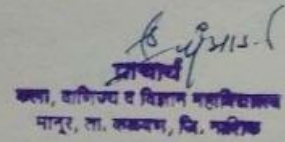 प्राचार्य
कला, वाणिज्य व विज्ञान महाविद्यालय
मानूर, ता. कळवण, जि. नाशिक